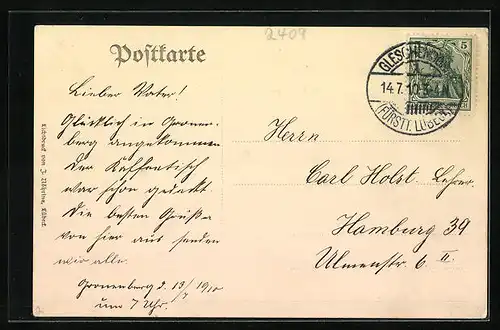 2409
Postkarte
Lieber Vater!
Glücklich in Gronen-
berg angekommen
Der Kaffeetisch
war schon gedeckt.
Die besten Grüße
von hier aus senden
wir alle.
Gronenberg d. 13/7 1910
um 7 Uhr.
5
GLESCHENDORF
14.7.10. 3-4 N
(FÜRSTT. LÜBECK)
Herrn
Carl Holst Lehrer.
Hamburg 39
Ulmenstr. 6 II.
Lichtdruck von J.